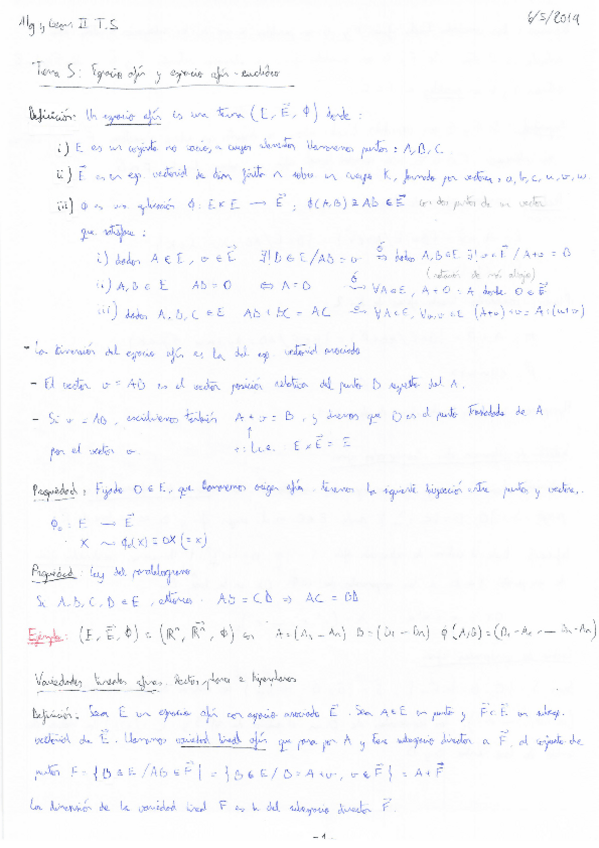 Alg y Geom II T.5 6/5/2019
Tema 5: Espacio afín y espacio afín-euclídeo
Definición: Un espacio afín es una terna (E, E⃗, Φ) donde:
i) E es un conjunto no vacío, a cuyos elementos llamaremos puntos: A, B, C.
ii) E⃗ es un esp. vectorial de dim finita n sobre un cuerpo K, formado por vectores: a, b, c, u, v, w.
iii) Φ es una aplicación Φ: E×E → E⃗; Φ(A,B) ≡ AB ∈ E⃗ con dos puntos da un vector
que satisface:
i) dados A ∈ E, v ∈ E⃗ ∃! B ∈ E / AB = v ó dados A, B ∈ E ∃! v ∈ E⃗ / A+v = B
(notación de más abajo)
ii) A, B ∈ E AB = 0 ⇔ A = B ó ∀A ∈ E, A+0 = A donde 0 ∈ E⃗
iii) dados A, B, C ∈ E AB + BC = AC ó ∀A ∈ E, ∀u,v ∈ E (A+u)+v = A+(u+v)
- La dimensión del espacio afín es la del esp. vectorial asociado
- El vector v = AB es el vector posición relativa del punto B respecto del A.
- Si v = AB, escribiremos también A + v = B, y diremos que B es el punto trasladado de A
por el vector v. E × E⃗ = E
Propiedad: Fijado O ∈ E, que llamaremos origen afín, tenemos la siguiente biyección entre puntos y vectores.
Φ₀: E → E⃗
X ⇝ Φ₀(X) = OX (= x)
Propiedad: Ley del paralelogramo
Si A, B, C, D ∈ E, entonces AB = CD ⇒ AC = BD
Ejemplo: (E, E⃗, Φ) = (ℝⁿ, ℝ⃗ⁿ, Φ) con A = (A₁ - Aₙ) B = (B₁ - Bₙ) Φ(A,B) = (B₁-A₁, — Bₙ-Aₙ)
Variedades lineales afines. Rectas, planos e hiperplanos
Definición: Sea E un espacio afín con espacio asociado E⃗. Sea A ∈ E un punto y F⃗ ⊂ E⃗ un subesp.
vectorial de E⃗. Llamamos variedad lineal afín que pasa por A y tiene subespacio director a F⃗, al conjunto de
puntos F = {B ∈ E / AB ∈ F⃗} = {B ∈ E / B = A+v, v ∈ F⃗} = A + F⃗
La dimensión de la variedad lineal F es la del subespacio director F⃗.
-1-